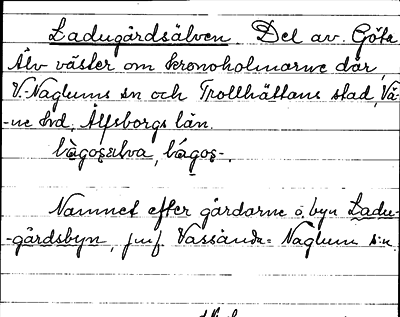 Ladugårdsälven Del av Göta
Älv väster om kronoholmarne där,
V. Naglums sn och Trollhättans stad, Vä-
-ne hd, Älfsborgs län.
Namnet efter gårdarne o. byn Ladu-
-gårdsbyn, jmf. Vassända-Naglum s:n.